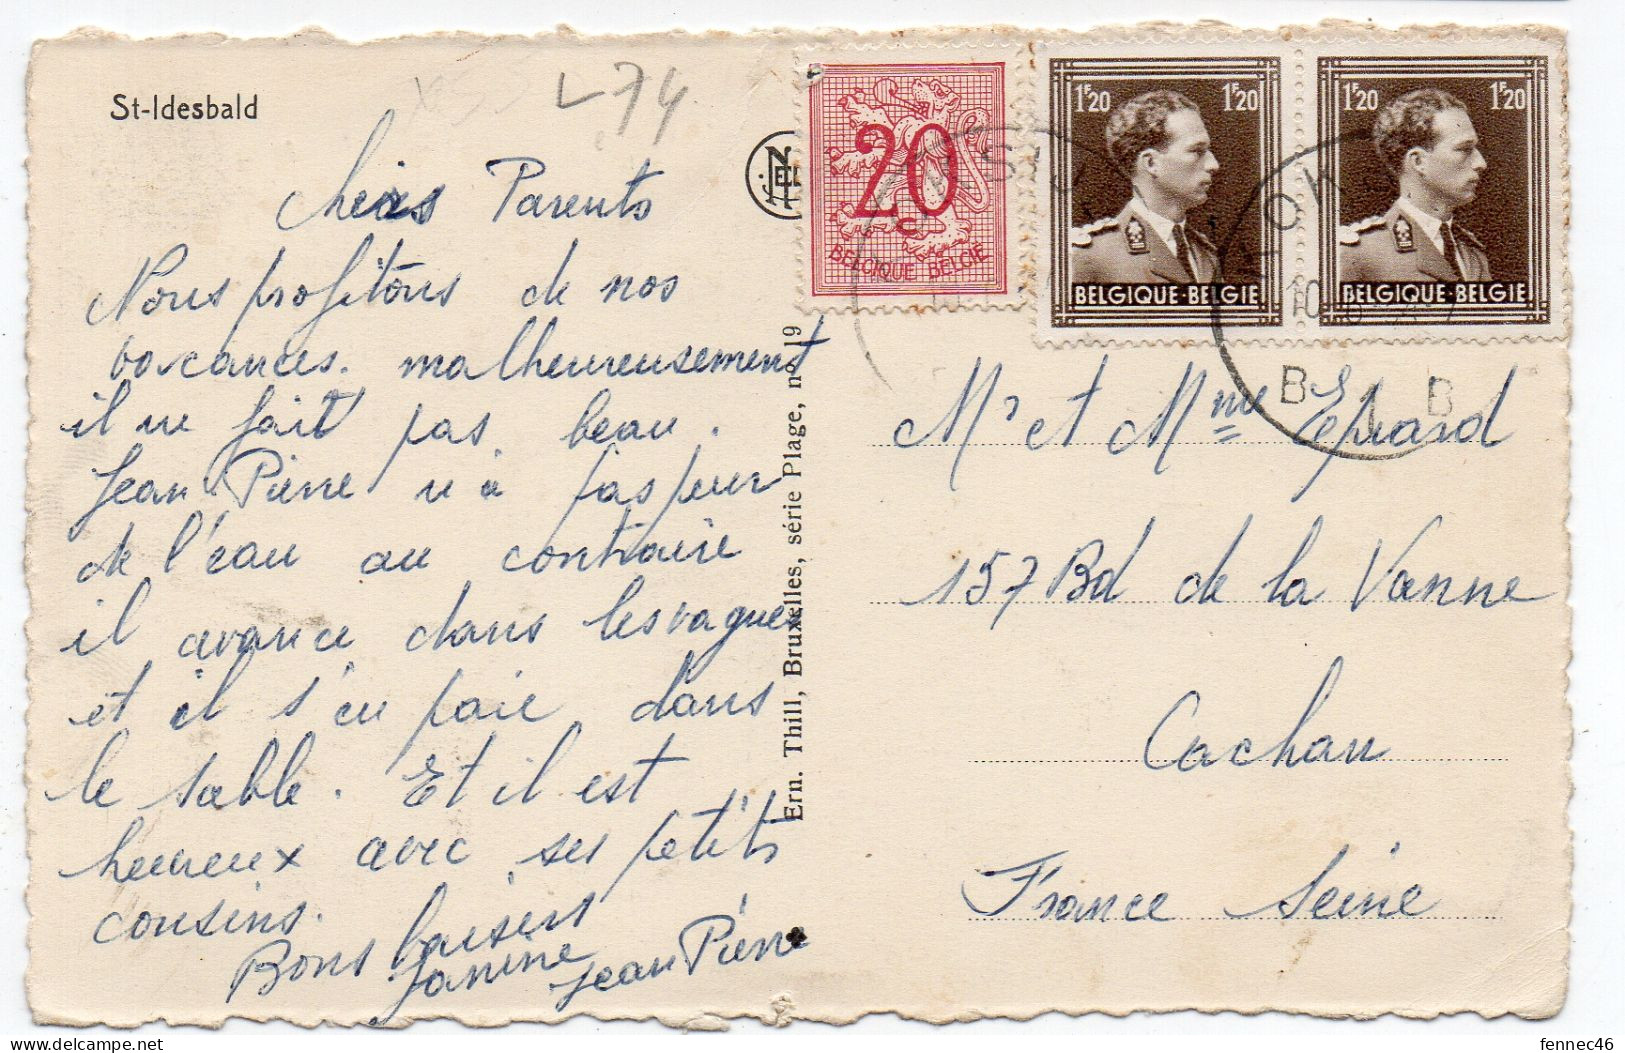 St-Idesbald
L 74
Chers Parents
Nous profitons de nos
vacances. malheureusement
il ne fait pas beau.
Jean Pierre n'a pas peur
de l'eau au contraire
il avance dans les vagues
et il s'en paie dans
le sable. Et il est
heureux avec ses petits
cousins.
Bons baisers
Janine
Jean Pierre
Ern. Thill, Bruxelles, série Plage, no 19
20
c
BELGIQUE BELGIE
1F20 1F20
BELGIQUE-BELGIE
1F20 1F20
BELGIQUE-BELGIE
10
B B
Mr et Mme Eprard
157 Bd de la Vanne
Cachan
France Seine
fennec46